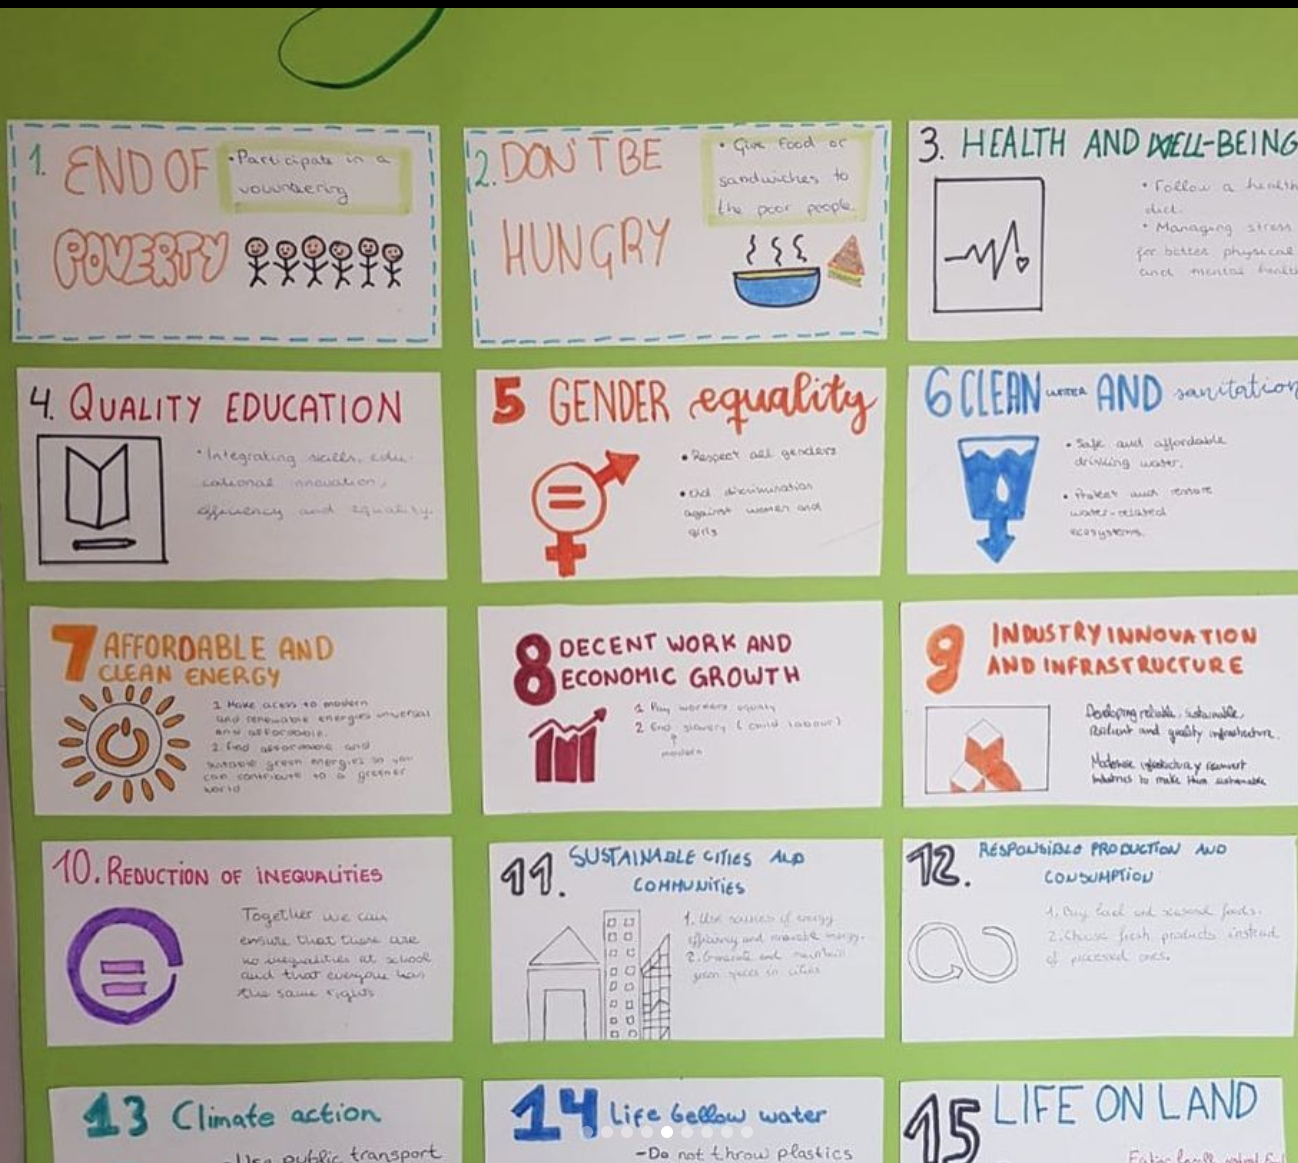 1. END OF
POVERTY
• Participate in a
volunteering
2. DON'T BE
HUNGRY
• Give food or
sandwiches to
the poor people.
3. HEALTH AND WELL-BEING
• Follow a health
diet.
• Managing stress
for better physical
and mental healt
4. QUALITY EDUCATION
• Integrating skills, edu-
cational innovation,
efficiency and equality.
5 GENDER equality
• Respect all genders
• End discrimination
against women and
girls
6 CLEAN WATER AND sanitation
• Safe and affordable
drinking water.
• Protect and restore
water-related
ecosystems.
7 AFFORDABLE AND
CLEAN ENERGY
1 Make acess to modern
and renewable energies universal
and affordable.
2. Find affordable and
suitable green energies so you
can contribute to a greener
world
8 DECENT WORK AND
ECONOMIC GROWTH
1 Pay workers equaly
2 End slavery (child labour)
modern
9 INDUSTRY INNOVATION
AND INFRASTRUCTURE
Developing reliable, sustainable,
resilient and quality infrastructure.
Modernise infrastructure reconvert
industries to make them sustainable
10. REDUCTION OF INEQUALITIES
Together we can
ensure that there are
no inequalities at school
and that everyone has
the same rights
11. SUSTAINABLE CITIES AND
COMMUNITIES
1. Use sources of energy
efficiency and renewable energy.
2. Generate and maintain
green spaces in cities
12. RESPONSIBLE PRODUCTION AND
CONSUMPTION
1. Buy local and seasonal foods.
2. Choose fresh products instead
of processed ones.
13 Climate action
- Use public transport
14 Life bellow water
- Do not throw plastics
15 LIFE ON LAND